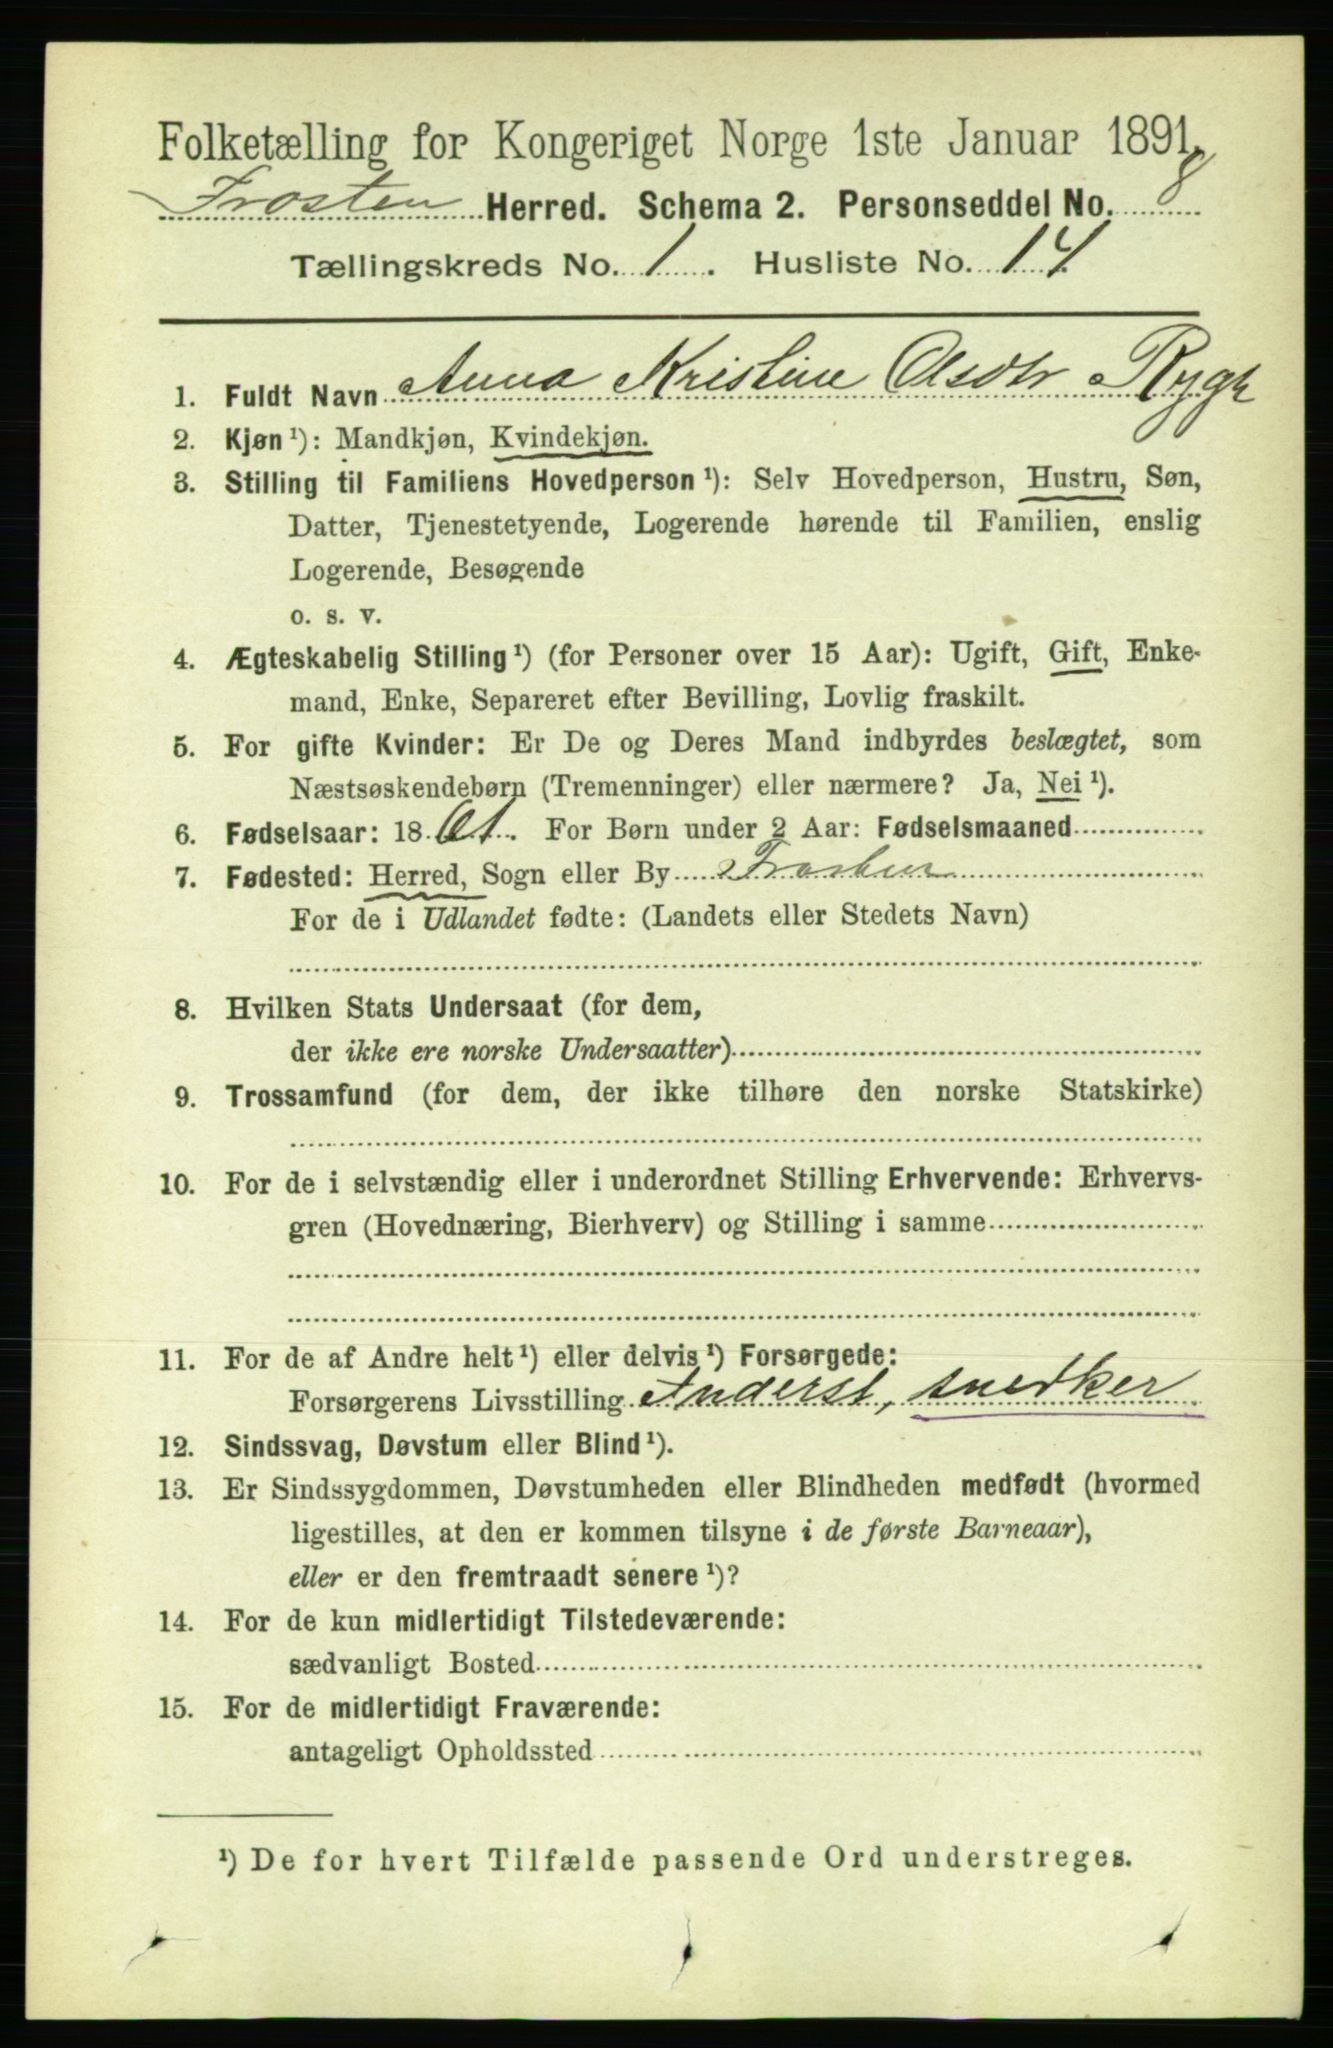 Folketælling for Kongeriget Norge 1ste Januar 1891.
Frosten Herred. Schema 2. Personseddel No. 8
Tællingskreds No. 1. Husliste No. 14.
1. Fuldt Navn Anna Kristine Olsdtr Rygh
2. Kjøn ¹): Mandkjøn, Kvindekjøn.
3. Stilling til Familiens Hovedperson ¹): Selv Hovedperson, Hustru, Søn,
Datter, Tjenestetyende, Logerende hørende til Familien, enslig
Logerende, Besøgende
o. s. v.
4. Ægteskabelig Stilling ¹) (for Personer over 15 Aar): Ugift, Gift, Enke-
mand, Enke, Separeret efter Bevilling, Lovlig fraskilt.
5. For gifte Kvinder: Er De og Deres Mand indbyrdes beslægtet, som
Næstsøskendebørn (Tremenninger) eller nærmere? Ja, Nei ¹).
6. Fødselsaar: 1861. For Børn under 2 Aar: Fødselsmaaned
7. Fødested: Herred, Sogn eller By Frosten
For de i Udlandet fødte: (Landets eller Stedets Navn)
8. Hvilken Stats Undersaat (for dem,
der ikke ere norske Undersaatter)
9. Trossamfund (for dem, der ikke tilhøre den norske Statskirke)
10. For de i selvstændig eller i underordnet Stilling Erhvervende: Erhvervs-
gren (Hovednæring, Bierhverv) og Stilling i samme
11. For de af Andre helt ¹) eller delvis ¹) Forsørgede:
Forsørgerens Livsstilling Inderst, snedker
12. Sindssvag, Døvstum eller Blind ¹).
13. Er Sindssygdommen, Døvstumheden eller Blindheden medfødt (hvormed
ligestilles, at den er kommen tilsyne i de første Barneaar),
eller er den fremtraadt senere ¹)?
14. For de kun midlertidigt Tilstedeværende:
sædvanligt Bosted
15. For de midlertidigt Fraværende:
antageligt Opholdssted
¹) De for hvert Tilfælde passende Ord understreges.